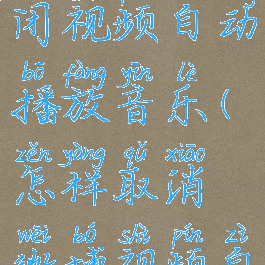 闭视频自动
bō fàng yīn lè
播放音乐(
zěn yàng qǔ xiāo
怎样取消
wēi bó shì pín zì
微博视频自